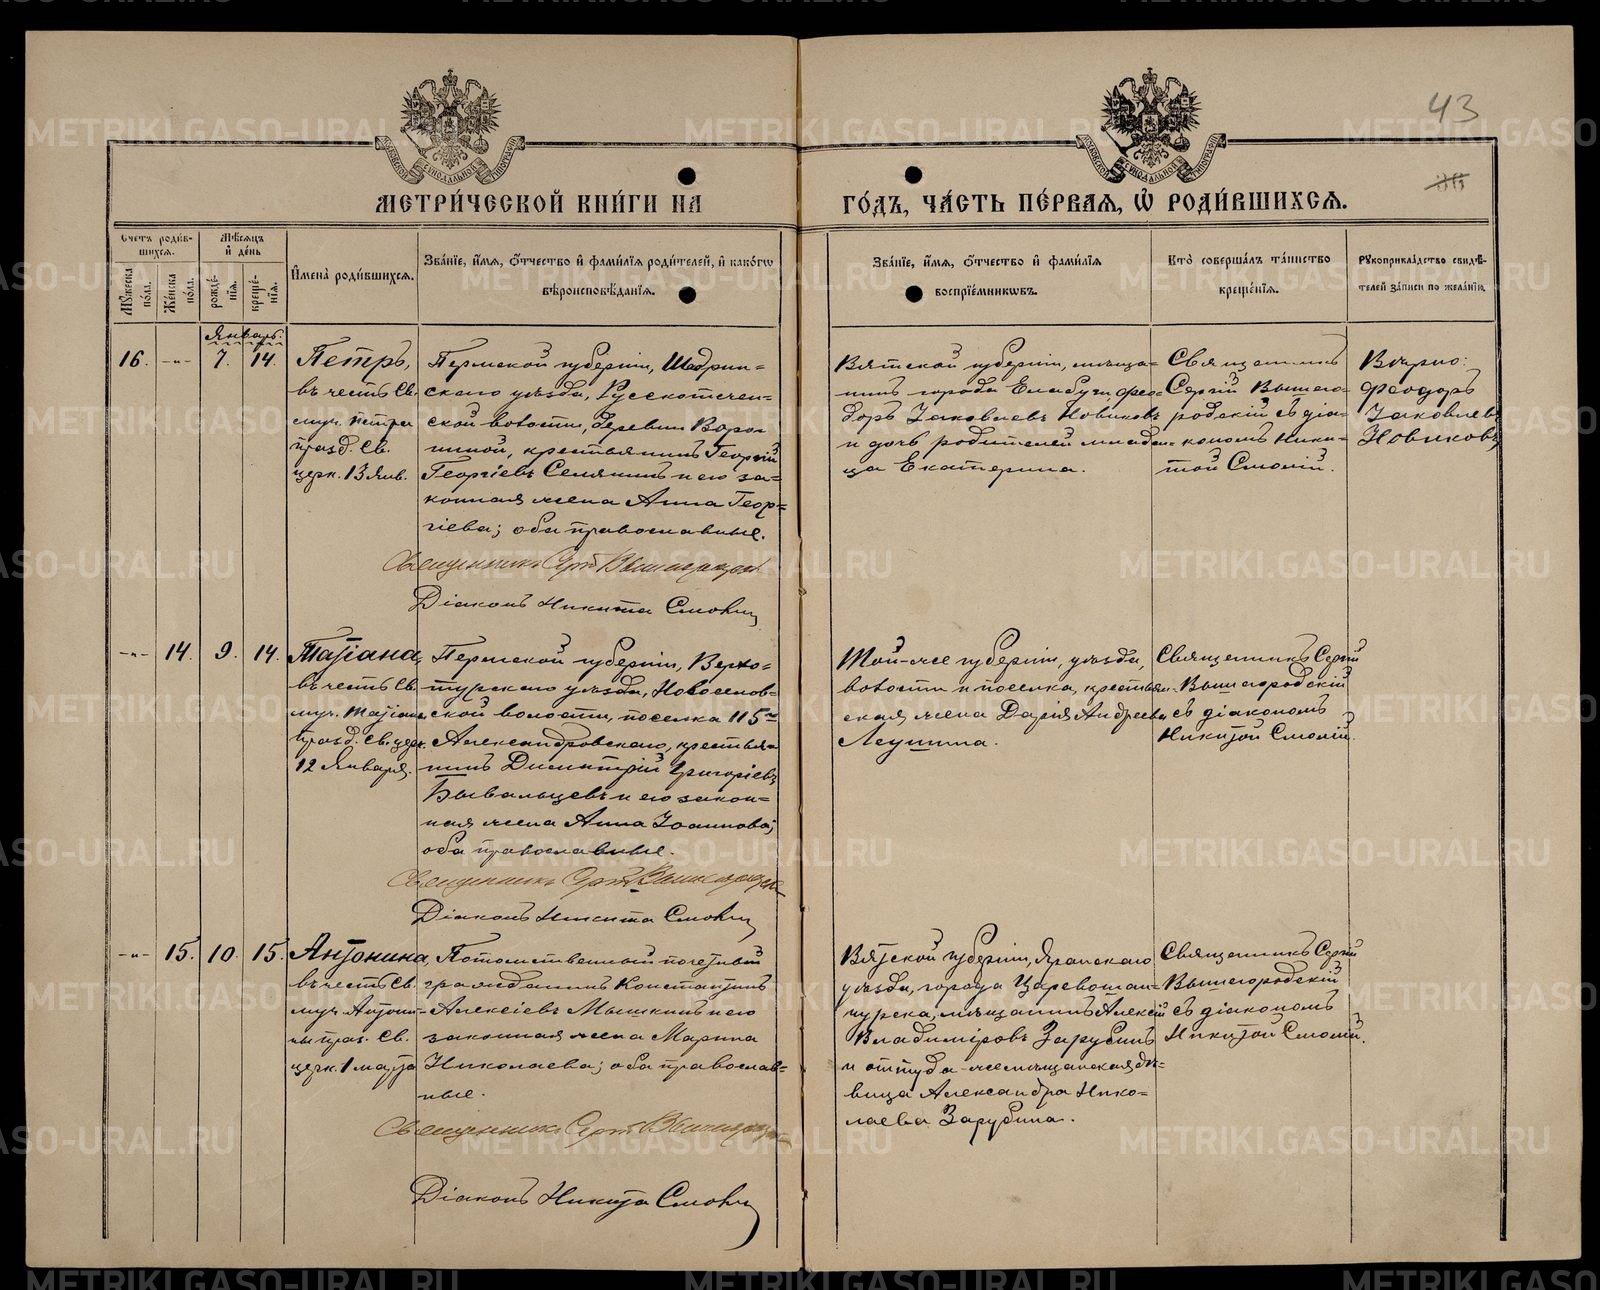 МЕТРИ́ЧЕСКОЙ КНИ́ГИ НА
ГО́ДЪ, ЧА́СТЬ ПЕ́РВАѦ, Ѡ҆ РОДИ́ВШИХСѦ.
43
Счетъ роди́в-
шихсѧ.
Мꙋ́жеска по́ла.
Же́нска по́ла.
Мѣ́сѧцъ
и҆ де́нь
рожде́-
нїѧ.
креще́-
нїѧ.
И҆мена̀ роди́вшихсѧ.
Зва́нїе, и҆́мѧ, ѻ҆́тчество и҆ фами́лїѧ роди́телей, и҆ како́гѡ
вѣроисповѣ́данїѧ.
Зва́нїе, и҆́мѧ, ѻ҆́тчество и҆ фами́лїѧ
воспрїе́мникѡвъ.
Кто̀ соверша́лъ та́инство
креще́нїѧ.
Рꙋкоприкла́дство свидѣ́-
телей за́писи по жела́нїю.
Январь
16.
-"-
7.
14.
Петръ,
въ честь Св.
муч. Петра
празд. Св.
церк. 13 Янв.
Пермской губерніи, Шадрин=
скаго уѣзда, Русскотечен=
ской волости, деревни Ворон
ниной, крестьянинъ Георгій
Георгіевъ Селянинъ и его за=
конная жена Анна Геор=
гіева; оба православные.
Священникъ Сергій Вышегородскій
Діаконъ Никита Смолич
Вятской губерніи, мѣща-
нинъ города Елабуги, Ѳео-
доръ Іаковлевъ Новиковъ
и дочь родителей младен-
ца Екатерина.
Священникъ
Сергій Вышего-
родскій съ діа-
кономъ Ники-
той Смолій.
Вѣрно:
Ѳеодоръ
Іаковлевъ
Новиковъ
-"-
14.
9.
14.
Татіана,
въ честь Св.
муч. Татіаны
празд. Св. церк.
12 Января.
Пермской губерніи, Верхо=
турскаго уѣзда, Новоселов=
ской волости, поселка 115го
Александровскаго, крестья=
нинъ Димитрій Григоріевъ
Бывальцевъ и его закон=
ная жена Анна Іоаннова;
оба православные.
Священникъ Сергій Вышегородскій
Діаконъ Никита Смолич
Той-же губерніи, уѣзда,
волости и поселка, крестьян-
ская жена Дарія Андреева
Леушина.
Священникъ Сергій
Вышегородскій
съ діакономъ
Никитой Смолій.
-"-
15.
10.
15.
Антонина,
въ честь Св.
муч. Антони=
ны праз. Св.
церк. 1 марта
Потомственный почетный
гражданинъ Константинъ
Алексіевъ Мышкинъ и его
законная жена Марина
Николаева; оба православ=
ные.
Священникъ Сергій Вышегородскій
Діаконъ Никита Смолич
Вятской губерніи, Яранскаго
уѣзда, города Царевосан=
чурска, мѣщанинъ Алексій
Владиміровъ Зарубинъ
и оттуда-же мѣщанская дѣ-
вица Александра Нико-
лаева Зарубина.
Священникъ Сергій
Вышегородскій
съ діакономъ
Никитой Смолій.
METRIKI.GASO-URAL.RU